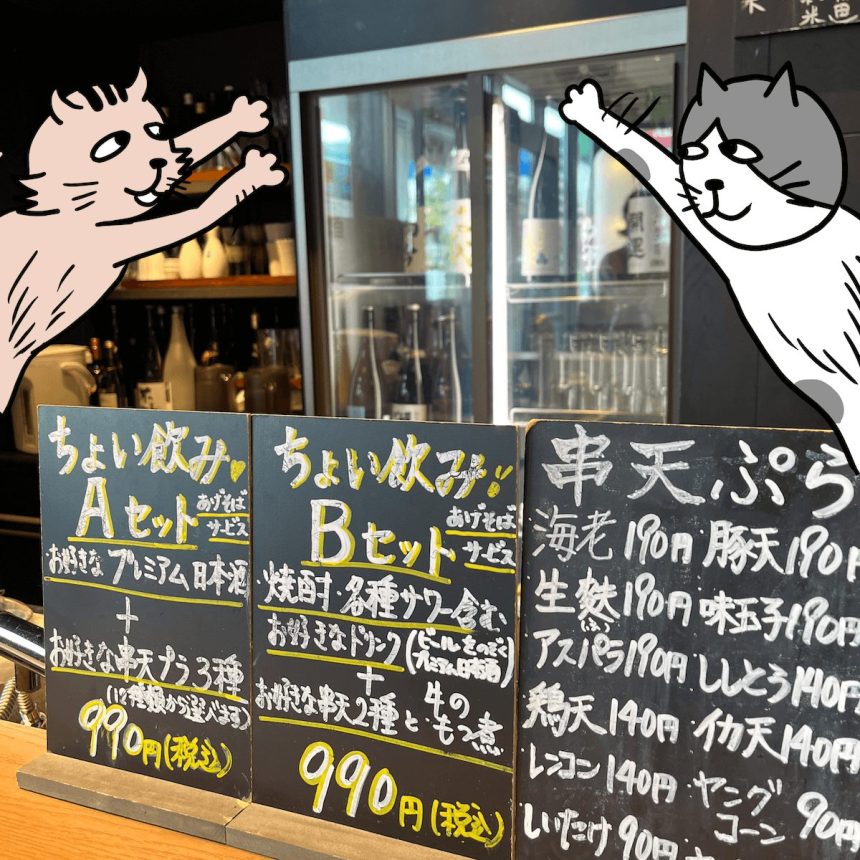 ちょい飲み
Aセット
あげそば
サービス
お好きなプレミアム日本酒
+
お好きな串天プラ3種
(12種類から選べます)
990円(税込)
ちょい飲み!
Bセット
あげそば
サービス
焼酎・各種サワー含む、
お好きなドリンク
(ビールをのぞく
プレミアム日本酒)
+
お好きな串天2種と
牛の
もつ煮
990円(税込)
串天ぷら
海老 190円 豚天 190円
生麩 190円 味玉子 190円
アスパラ 190円 ししとう 140円
鶏天 140円 イカ天 140円
レンコン 140円 ヤング
コーン 90円
しいたけ 90円
開運
米